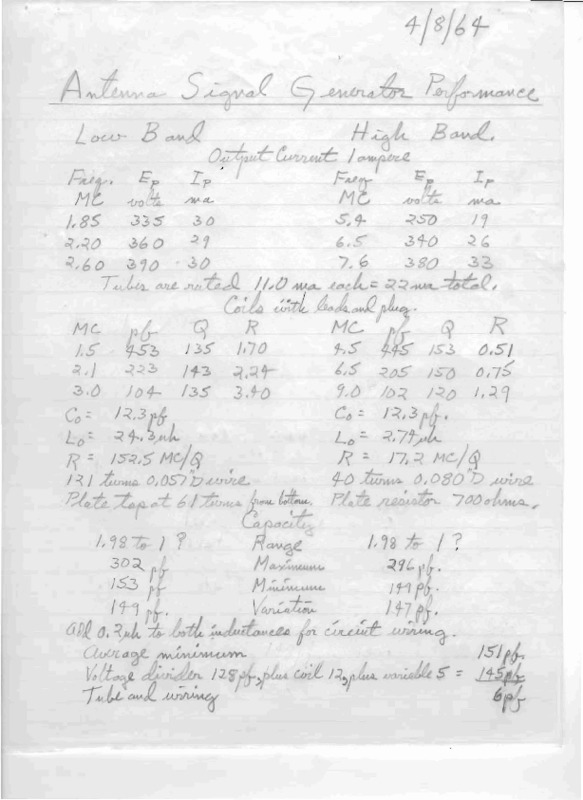 4/8/64
Antenna Signal Generator Performance
Low Band High Band.
Output Current 1 ampere
Freq. Ep Ip Freq Ep Ip
MC volts ma MC volts ma
1.85 335 30 5.4 250 19
2.20 360 29 6.5 340 26
2.60 390 30 7.6 380 33
Tubes are rated 11.0 ma each = 22 ma total.
Coils with leads and plug.
MC pf Q R MC pf Q R
1.5 453 135 1.70 4.5 445 153 0.51
2.1 223 143 2.24 6.5 205 150 0.75
3.0 104 135 3.40 9.0 102 120 1.29
Co = 12.3 pf Co = 12.3 pf.
Lo = 24.3 μh Lo = 2.74 μh
R = 152.5 MC/Q R = 17.2 MC/Q
121 turns 0.057"D wire 40 turns 0.080"D wire
Plate tap at 61 turns from bottom. Plate resistor 700 ohms.
Capacity
1.98 to 1 ? Range 1.98 to 1 ?
302 pf Maximum 296 pf.
153 pf Minimum 149 pf.
149 pf. Variation 147 pf.
add 0.2 μh to both inductances for circuit wiring.
Average minimum 151 pf.
Voltage divider 128 pf, plus coil 12, plus variable 5 = 145 pf
Tube and wiring 6 pf